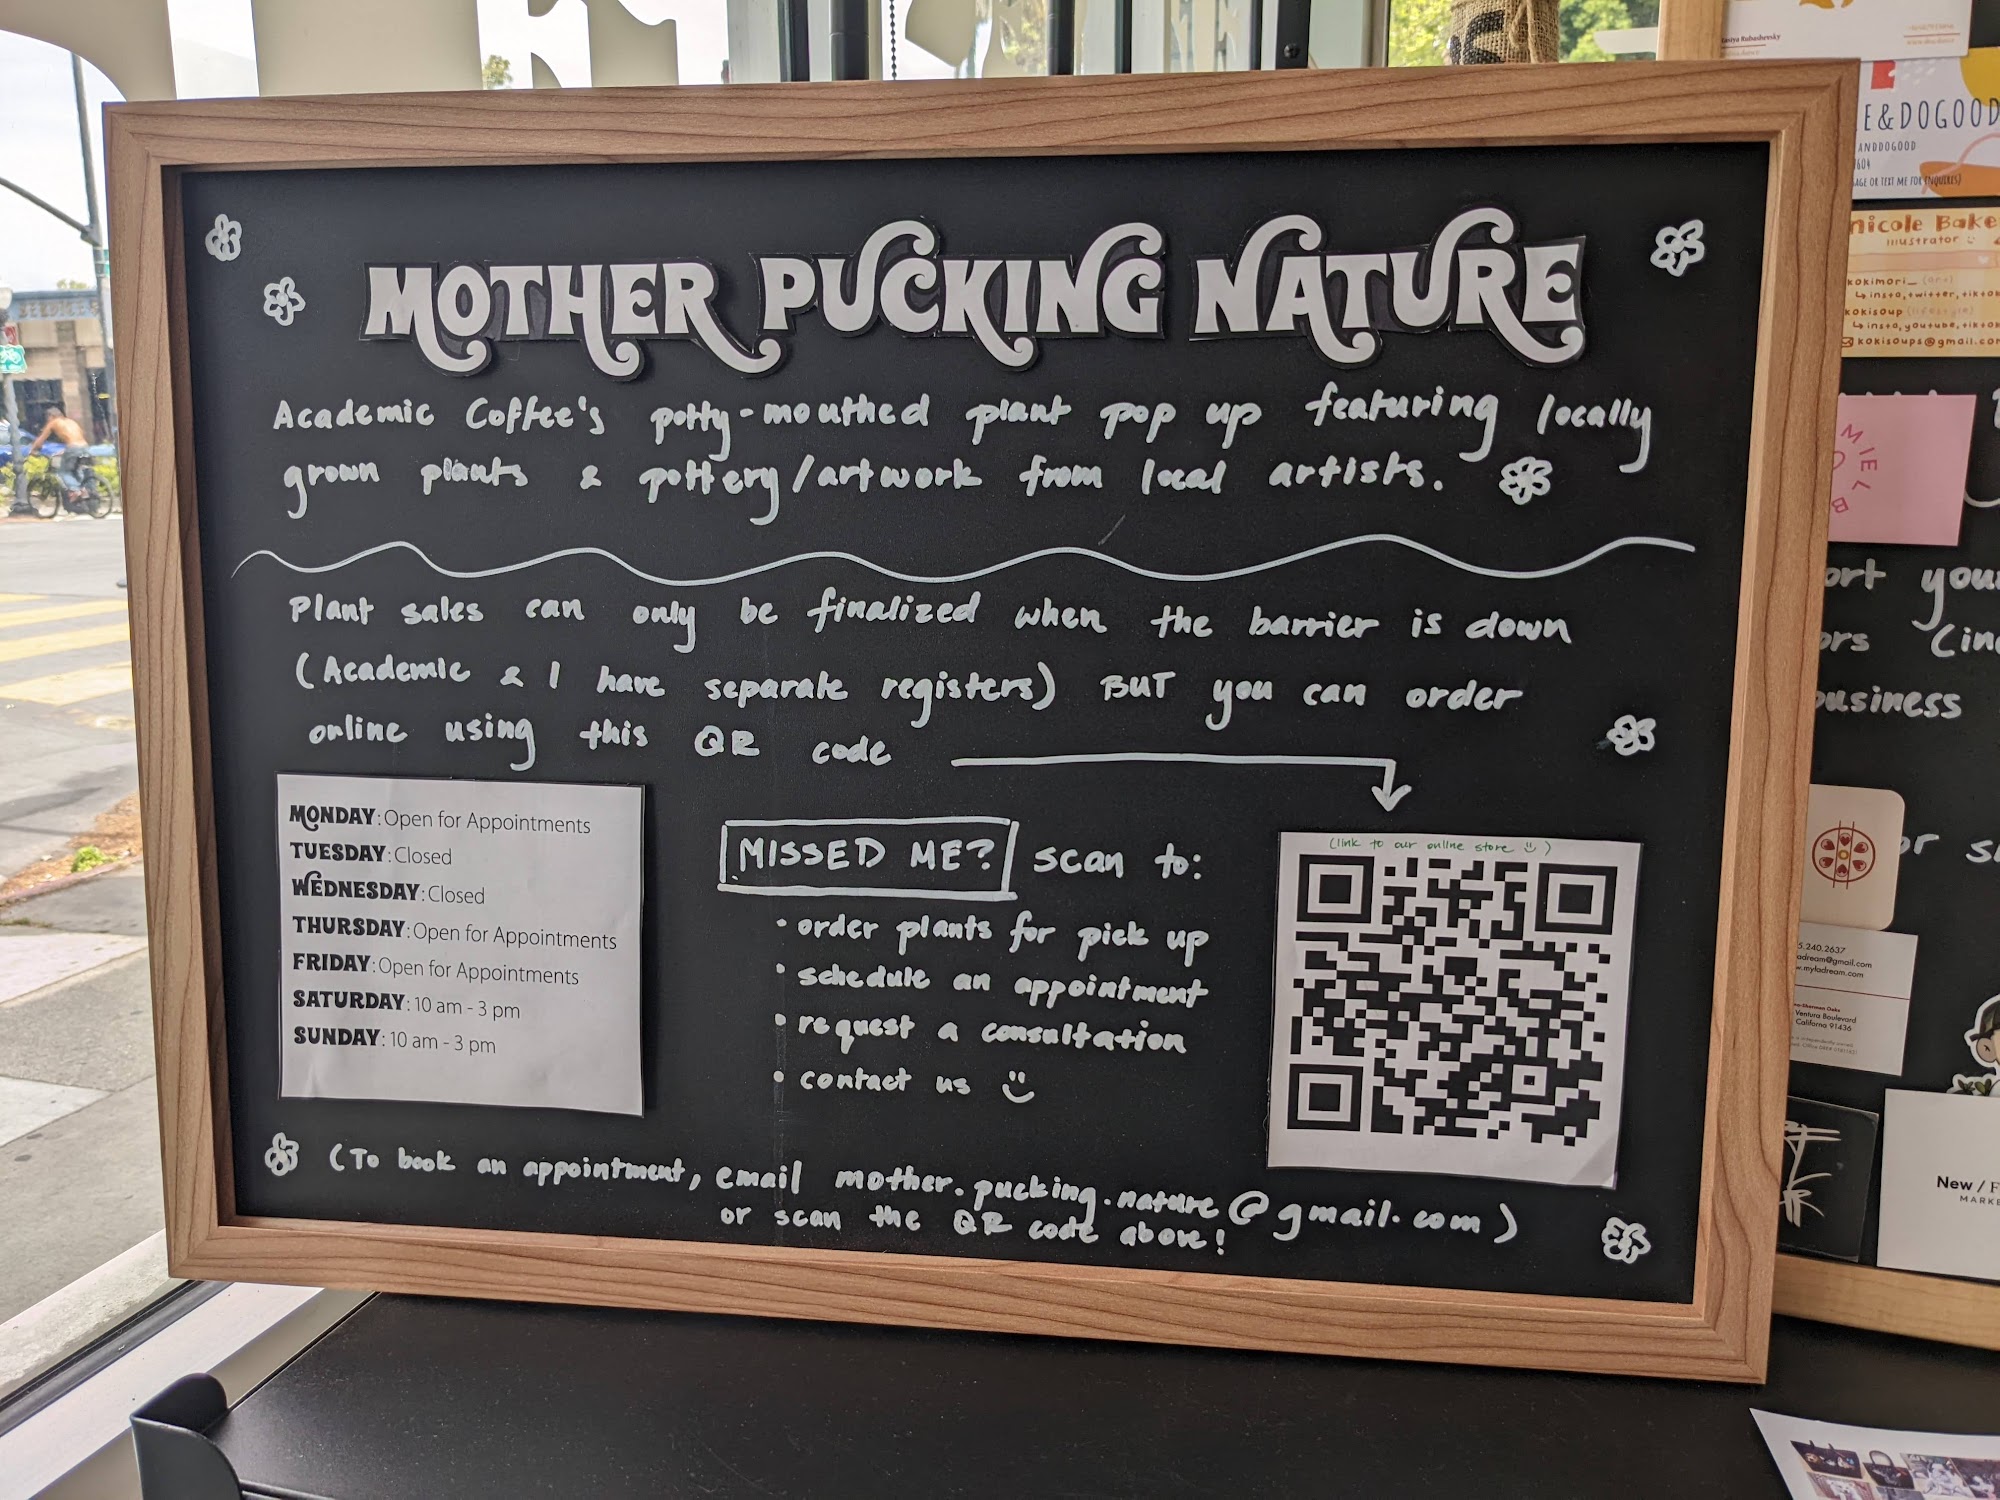 MOTHER PUCKING NATURE
Academic Coffee's potty-mouthed plant pop up featuring locally
grown plants & pottery/artwork from local artists.
Plant sales can only be finalized when the barrier is down
(Academic & I have separate registers) BUT you can order
online using this QR code
MONDAY: Open for Appointments
TUESDAY: Closed
WEDNESDAY: Closed
THURSDAY: Open for Appointments
FRIDAY: Open for Appointments
SATURDAY: 10 am - 3 pm
SUNDAY: 10 am - 3 pm
MISSED ME? scan to:
• order plants for pick up
• schedule an appointment
• request a consultation
• contact us
(link to our online store)
(To book an appointment, email mother.pucking.nature@gmail.com)
or scan the QR code above!
E&DOGOOD
ANDDOGOOD
nicole Bake
illustrator
kokimori_ (art)
insta, twitter, tiktok
kokisoup (lifestyle)
insta, youtube, tiktok
kokisoups@gmail.com
MIEL
ort your
ors
business
5.240.2637
adream@gmail.com
w.myladream.com
Ventura Boulevard
California 91436
New /
MARKE